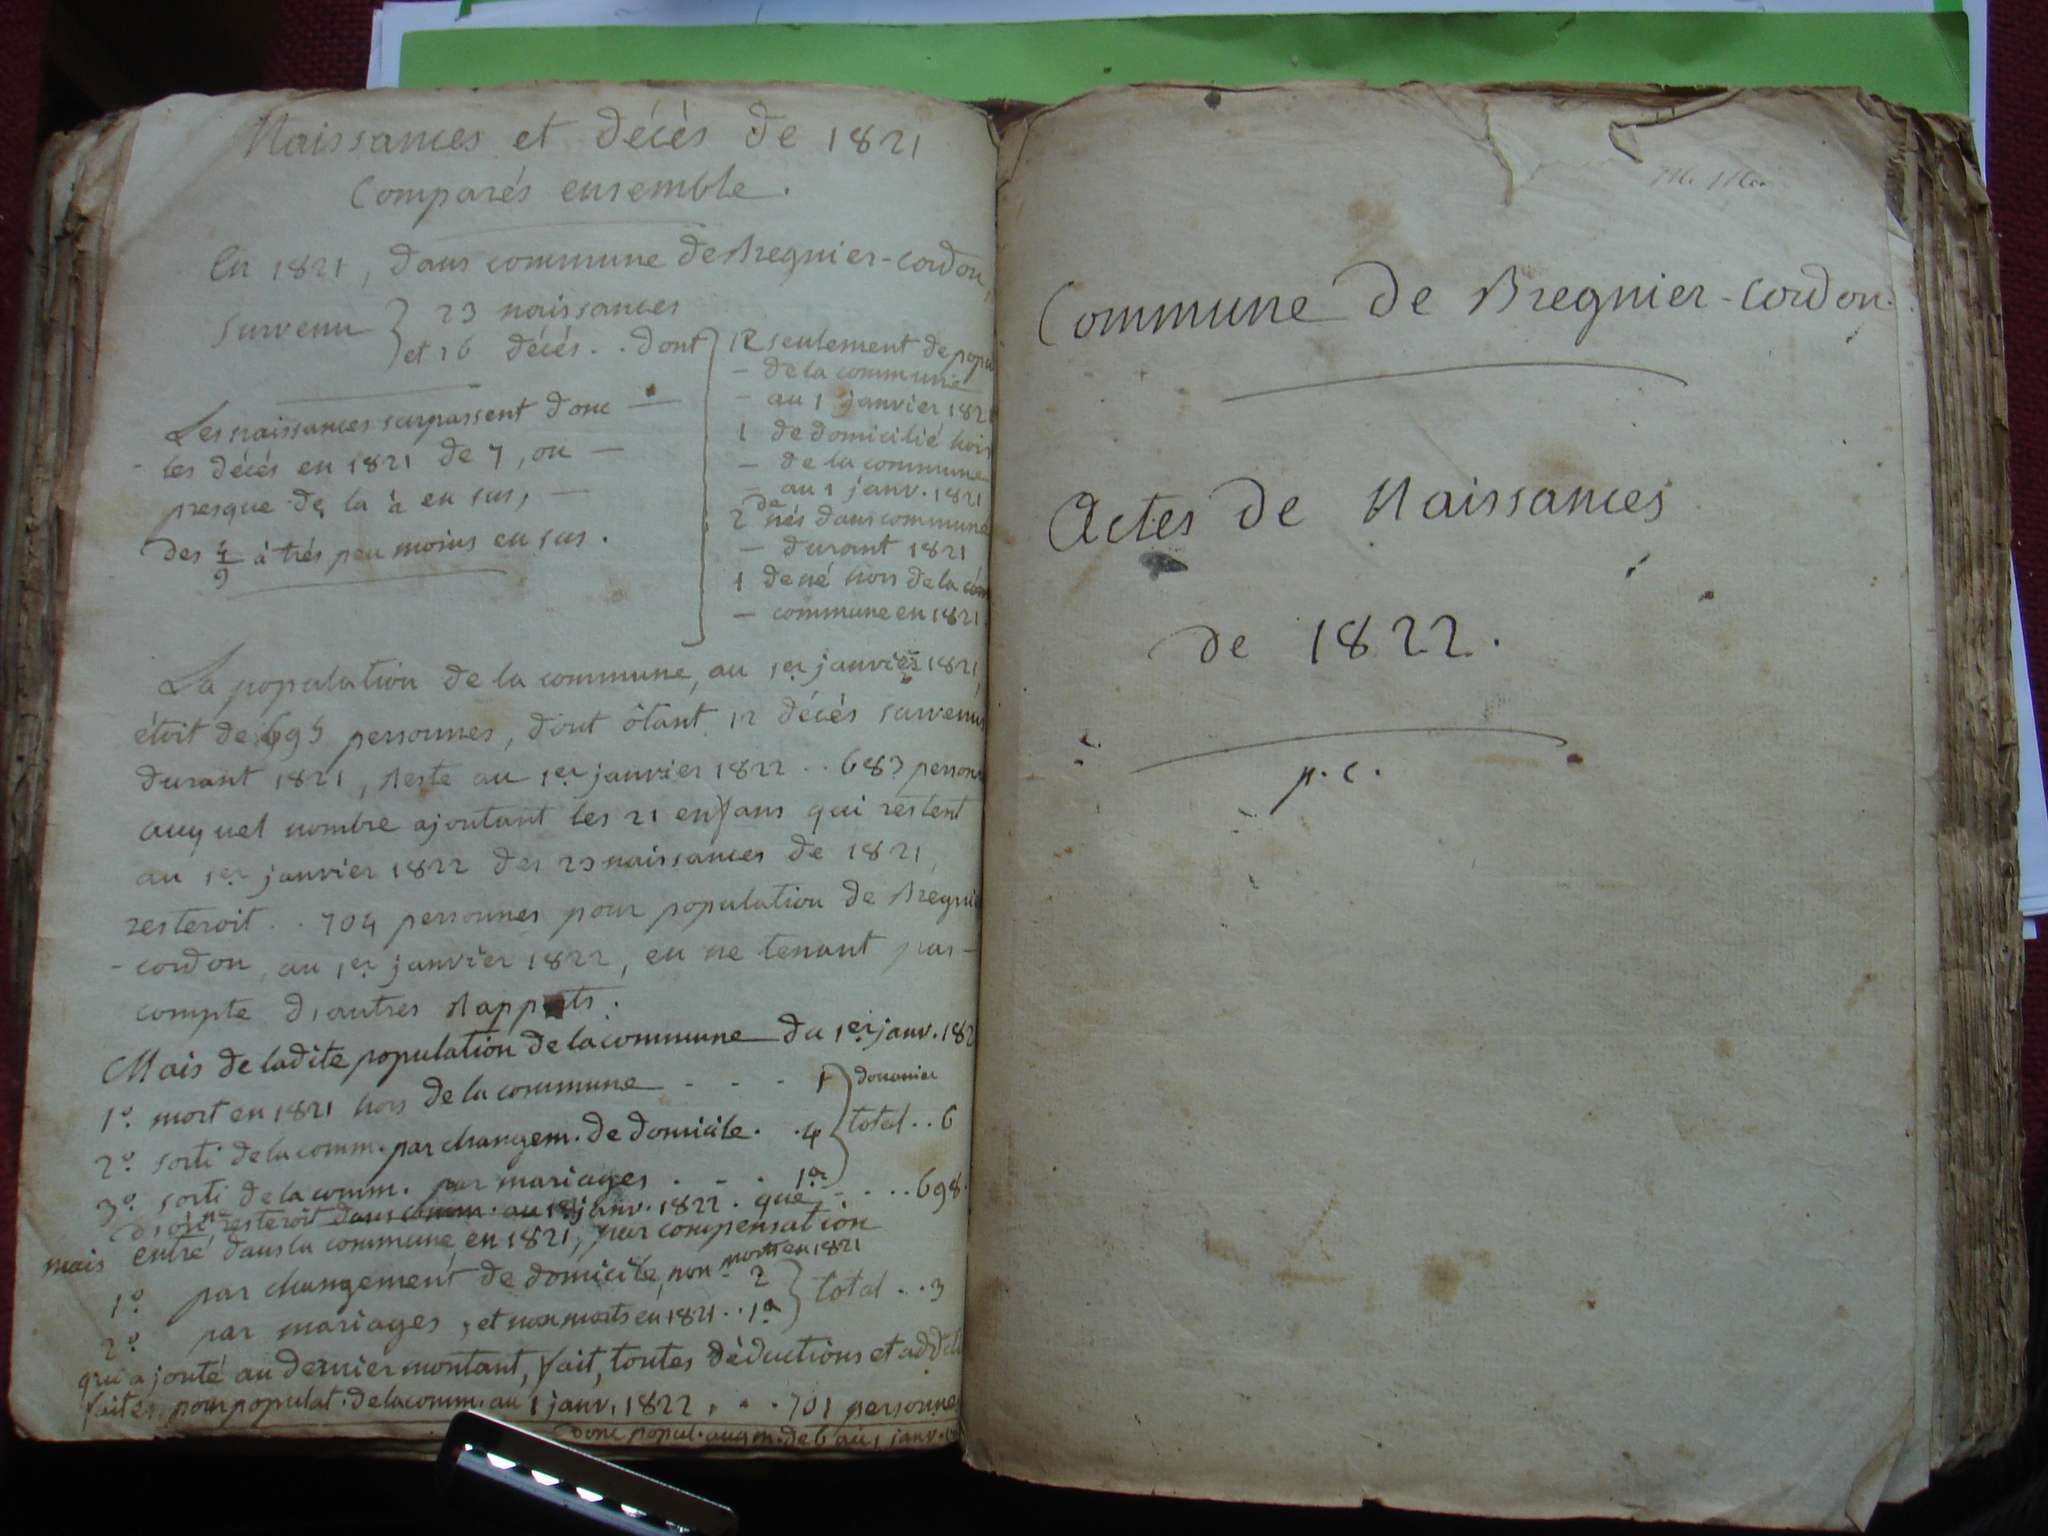 Naissances et décès de 1821
Comparés ensemble.
En 1821, dans commune de Bregnier-Cordon,
Survenu 23 naissances
et 16 décès .. dont
12 seulement de popu
- de la commune
- au 1 janvier 1821
1 de domicilié hors
- de la commune
- au 1 janv. 1821
2 de nés dans commune
- durant 1821
1 de né hors de la com
- commune en 1821
Les naissances surpassent donc -
- les décès en 1821 de 7, ou -
presque de la à en sus, -
des 4/9 à très peu moins en sus.
La population de la commune, au 1er janvier 1821,
étoit de 695 personnes, dont ôtant 12 décès survenus
durant 1821, Reste au 1er janvier 1822 .. 683 person
auquel nombre ajoutant les 21 enfans qui restent
au 1er janvier 1822 des 23 naissances de 1821,
resteroit .. 704 personnes pour population de Brégnie
- cordon, au 1er janvier 1822, en ne tenant pas -
compte d'autres Rapports.
Mais de ladite population de la commune du 1er janv. 182
1º. mort en 1821 hors de la commune - - - 1 douanier
2º. sorti de la comm. par changem. de domicile. . 4 total .. 6
3º. sorti de la comm. par mariages . - . 1
resteroit dans comm. au 1er janv. 1822. que - . . . 698.
mais entré dans la commune, en 1821, par compensation
1º. par changement de domicile, non morts en 1821 2 total ... 3
2º. par mariages, et non morts en 1821 .. 1
qui ajouté au dernier montant, fait, toutes déductions et addit
faites, pour populat. de la comm. au 1 janv. 1822 . . . 701 personnes
Donc popul. augm. de 6 au 1 janv.
Commune de Bregnier-Cordon.
Actes de Naissances
de 1822.
p. c.